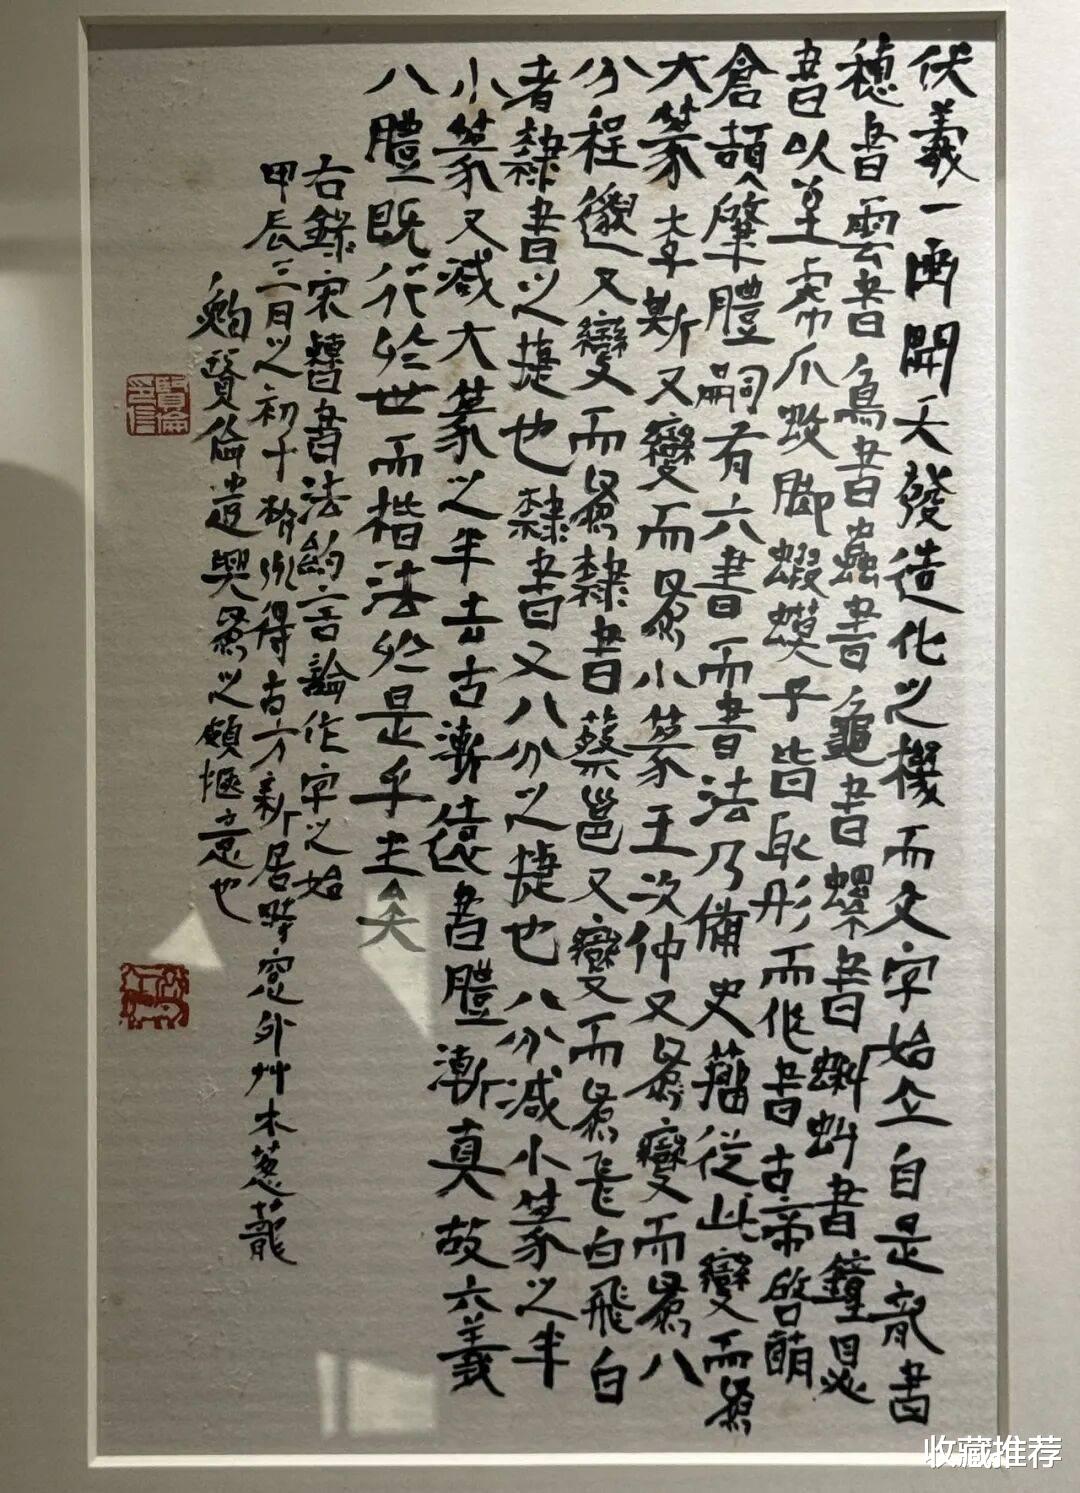 伏羲一畫開天發造化之機而文字始立自是龍書
穗書雲書鳥書蟲書龜書螺書蝌蚪書鐘
書以至虎爪蚊腳蝦蟆子皆取形而作書古帝啓萌
倉頡肇體嗣有六書而書法乃備史籀從此變而爲
大篆李斯又變而爲小篆王次仲又爲變而爲八
分程邈又變而爲隸書蔡邕又變而爲飛白飛白
者隸書之捷也隸書又八分之捷也八分减小篆之半
小篆又减大篆之半去古漸遠書體漸真故六義
八體既行於世而楷法於是乎生矣
右錄宋曹書法約言論作字之始
甲辰三月之初于所得古方新居時窗外艸木蔥蘢
賢倫遣興爲之頗愜意也
賢倫
收藏推荐